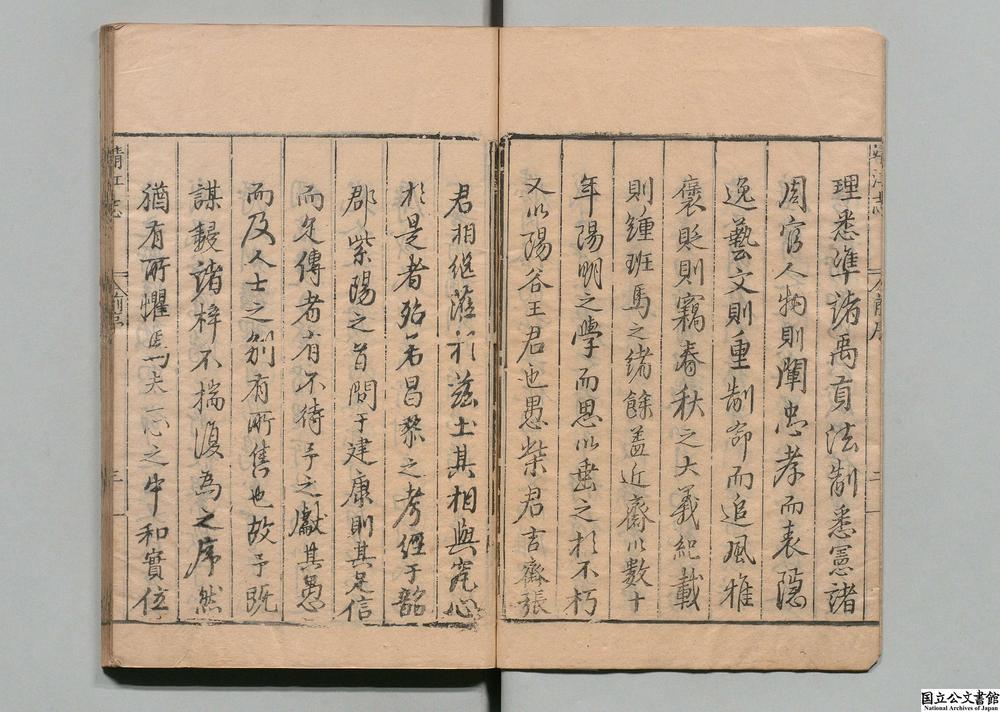 理悉準諸禹貢法制悉憲諸
周官人物則闡忠孝而表隱
逸藝文則重制命而追風雅
褒貶則竊春秋之大義紀載
則鍾班馬之緒餘蓋近齋以數十
年陽明之學而思以垂之於不朽
又以陽谷王君也愚柴君吉齋張
君相繼蒞於茲土其相與究心
於是者殆若昌黎之考經于韶
郡紫陽之首問于建康則其足信
而足傳者有不待予之獻其愚
而及人士之別有所售也故予既
謀鋟諸梓不揣復為之序然
猶有所懼焉夫一心之中和實位
靖江志
前序
三
国立公文書館
National Archives of Japan